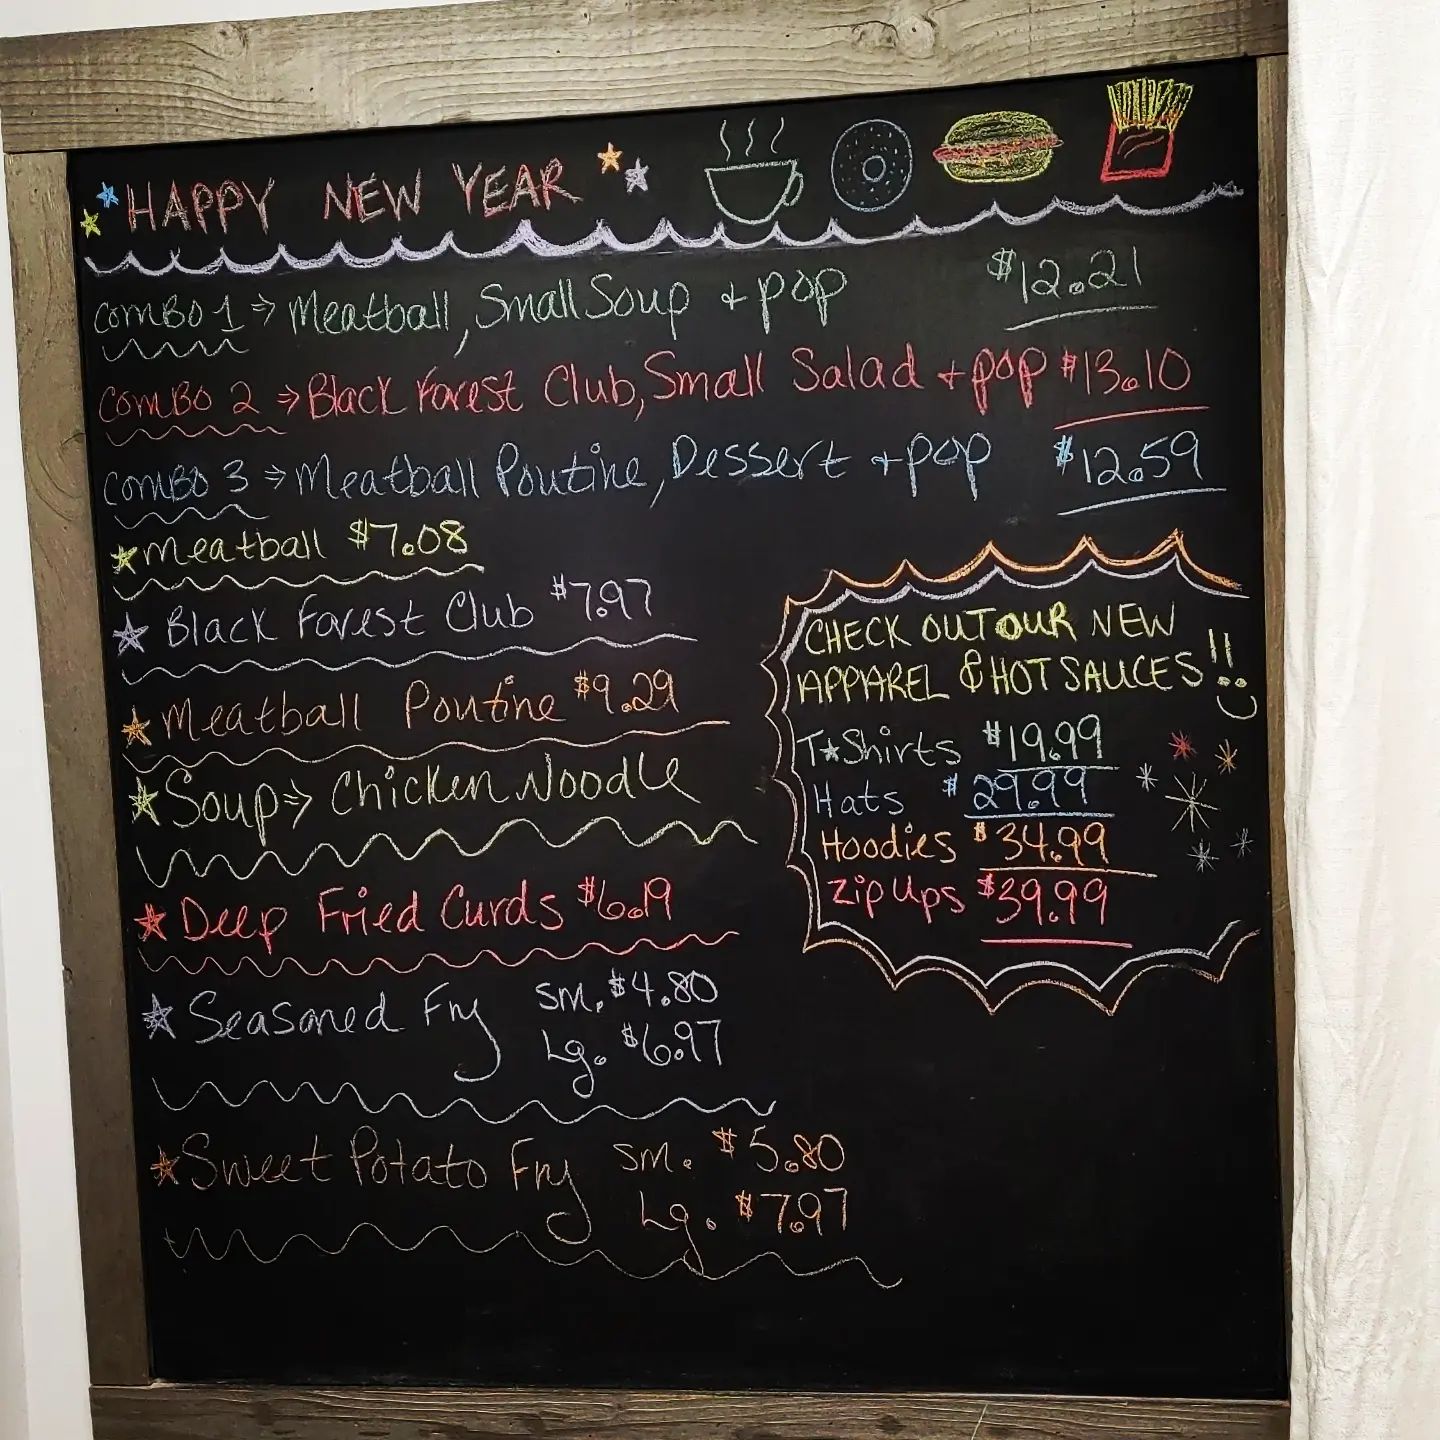 HAPPY NEW YEAR
COMBO 1 ⇒ Meatball, Small Soup + pop $12.21
COMBO 2 ⇒ Black Forest Club, Small Salad + pop $13.10
COMBO 3 ⇒ Meatball Poutine, Dessert + pop $12.59
Meatball $7.08
Black Forest Club $7.97
Meatball Poutine $9.29
Soup ⇒ Chicken Noodle
Deep Fried Curds $6.19
Seasoned Fry Sm. $4.80
Lg. $6.97
Sweet Potato Fry Sm. $5.80
Lg. $7.97
CHECK OUT OUR NEW
APPAREL & HOT SAUCES!!
T★Shirts $19.99
Hats $29.99
Hoodies $34.99
Zip Ups $39.99